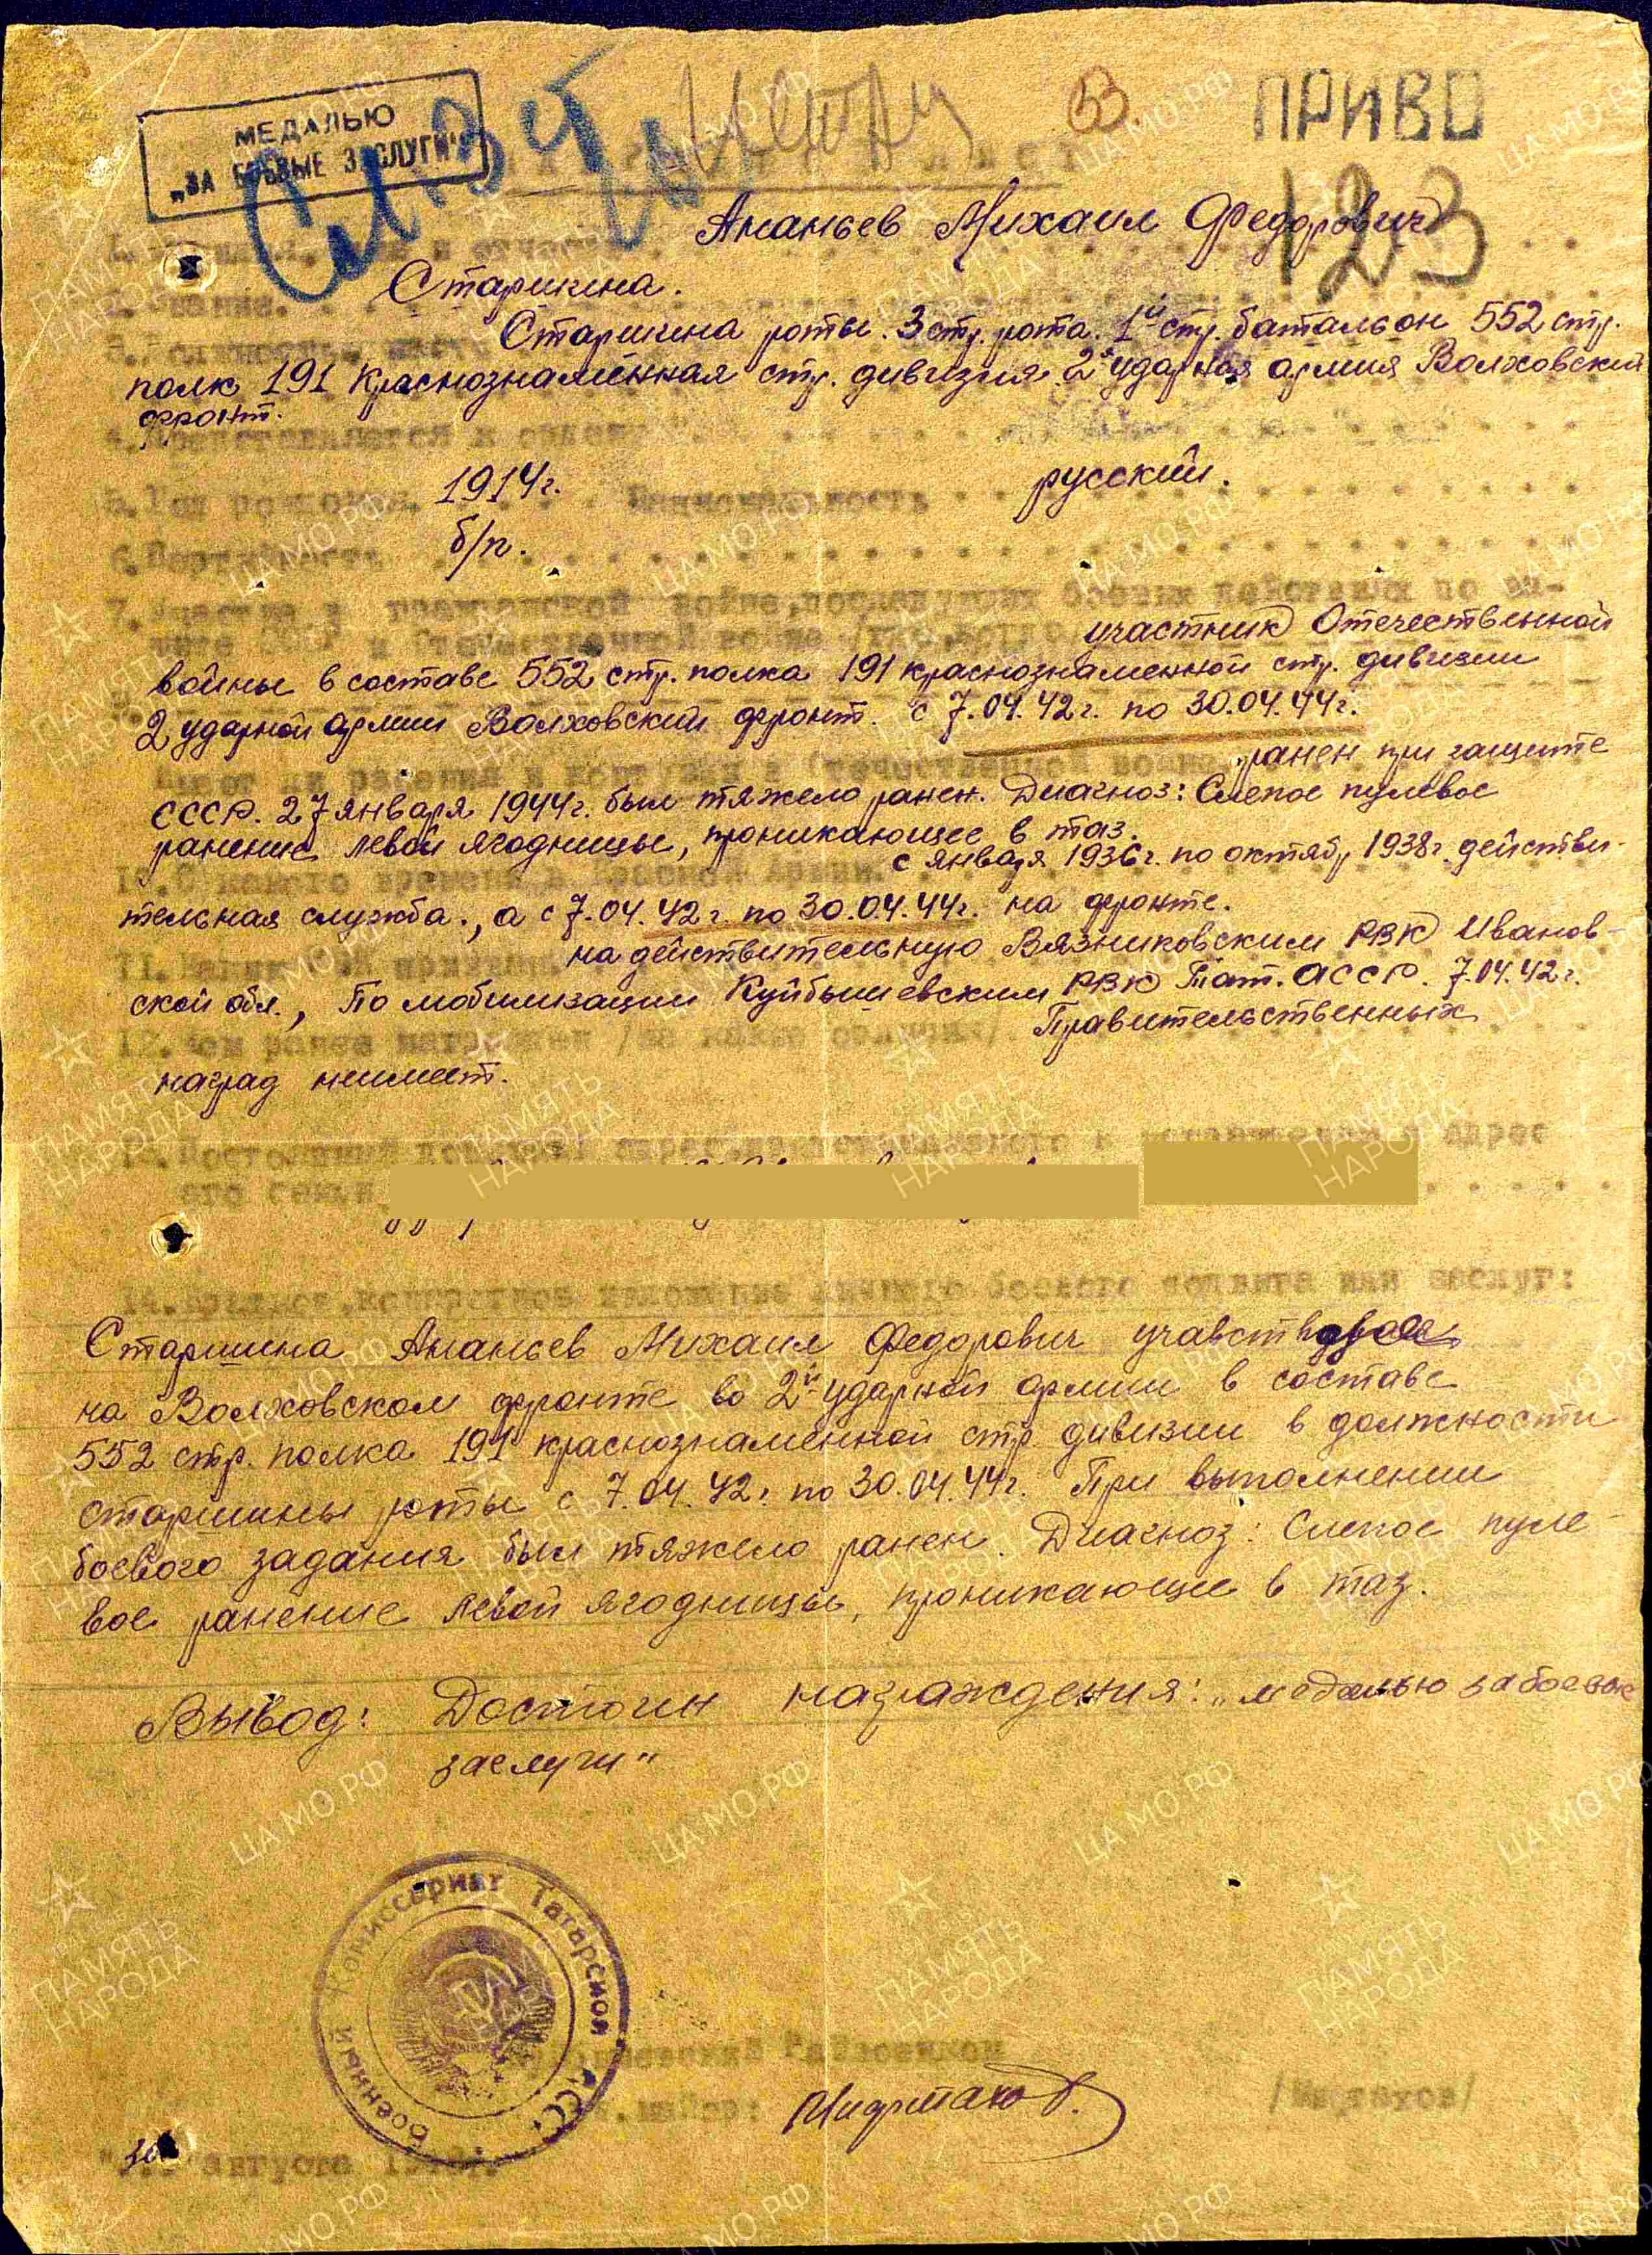 МЕДАЛЬЮ
"ЗА БОЕВЫЕ ЗАСЛУГИ"
53.
ПРИВО
123
Ананьев Михаил Федорович
2. Звание. Старшина.
Старшина роты. 3 стр. рота. 1й стр. батальон 552 стр.
полк 191 Краснознамённая стр. дивизия 2я ударная армия Волховский
фронт.
5. Год рождения. 1914г. Национальность русский.
6. Партийность б/п.
7. Участие в гражданской войне, последующих боевых действиях по за-
щите СССР и Отечественной войне участник Отечественной
войны в составе 552 стр. полка 191 краснознаменной стр. дивизии
2 ударной армии Волховский фронт. с 7.04.42г. по 30.04.44г.
Имеет ли ранения и контузии в Отечественной войне ранен при защите
СССР. 27 января 1944г. был тяжело ранен. Диагноз: Слепое пулевое
ранение левой ягодницы, проникающее в таз.
10. С какого времени в Красной Армии. с января 1936г. по октябр 1938г. действи-
тельная служба., а с 7.04.42г. по 30.04.44г. на фронте.
11. Каким РВК призван на действительную Вязниковским РВК Иванов-
ской обл., По мобилизации Куйбышевским РВК Тат. АССР. 7.04.42г.
12. Чем ранее награжден /за какие отличия/. Правительственных
наград неимеет.
13. Постоянный домашний адрес представляемого к награждению и адрес
его семьи
14. Краткое, конкретное изложение личного боевого подвига или заслуг:
Старшина Ананьев Михаил Федорович учавствовал
на Волховском фронте во 2й ударной армии в составе
552 стр. полка 191 краснознаменной стр. дивизии в должности
старшины роты с 7.04.42г. по 30.04.44г. При выполнении
боевого задания был тяжело ранен. Диагноз: Слепое пуле-
вое ранение левой ягодницы, проникающее в таз.
Вывод: Достоин награждения: "медалью за боевые
заслуги"
Военный Комиссариат Татарской АССР
Райвоенком
майор:
августа
ПАМЯТЬ НАРОДА
ЦА МО РФ